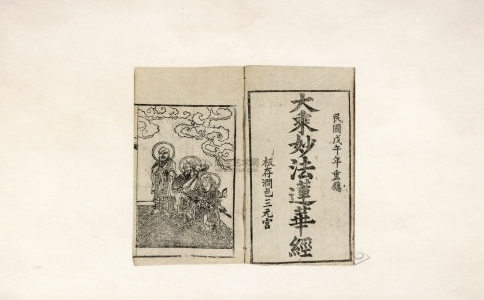 民國戊午年重鐫
大乘妙法蓮華經
板存澗邑三元宮